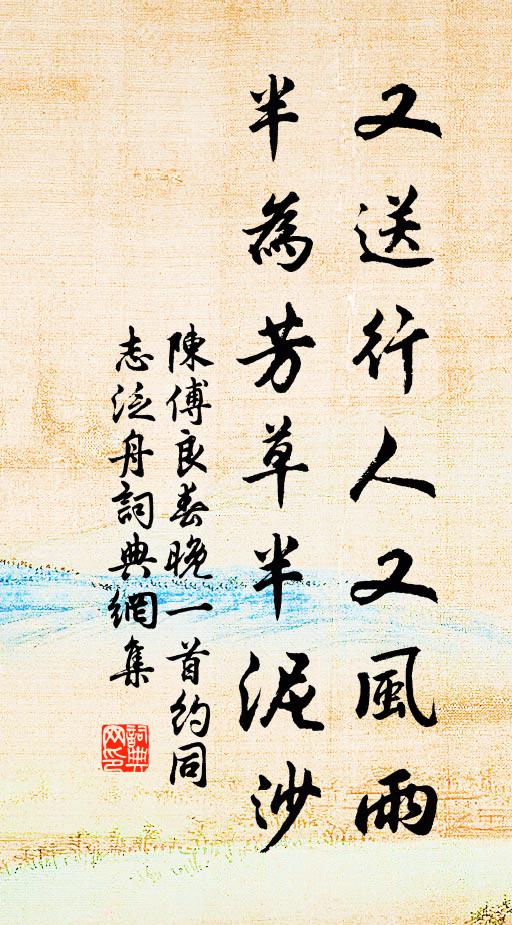 又送行人又風雨
半為芳草半泥沙
陳傅良春晚一首約同
志泛舟詞典網集
詞典
网印